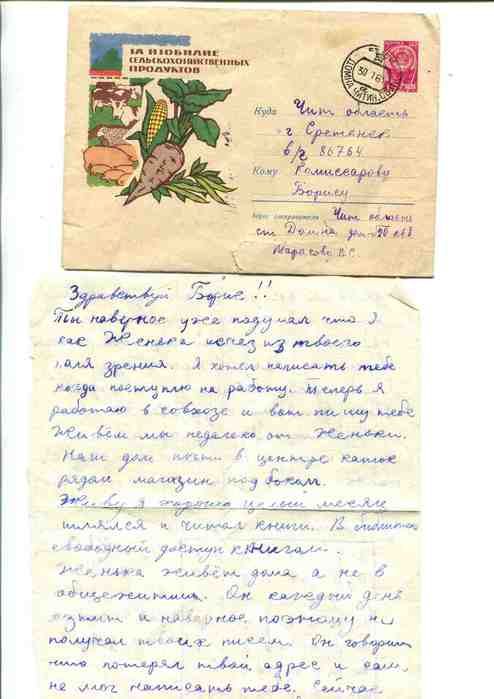 ЗА ИЗОБИЛИЕ
СЕЛЬСКОХОЗЯЙСТВЕННЫХ
ПРОДУКТОВ
30 7 6
Куда Чит область
г Сретенск
в/ч 86764
Кому Комиссарову
Борису
Адрес отправителя Чит область
ст Домна
Марасова В.С.
Здравствуй Борис!!
Ты наверное уже подумал что я
как Женька исчез из твоего
поля зрения. Я хотел написать тебе
когда поступлю на работу. Теперь я
работаю в совхозе и вот пишу тебе
Живём мы недалеко от Женьки.
Наш дом почти в центре каток
рядом магазин под боком.
Живу я хорошо целый месяц
шлялся и читал книги. В библиотеке
свободный доступ к книгам.
Женька живёт дома а не в
общежитии. Он каждый день
ездит и наверное поэтому не
получал твоих писем. Он говорит
что потерял твой адрес и сам
не мог написать тебе. Сейчас